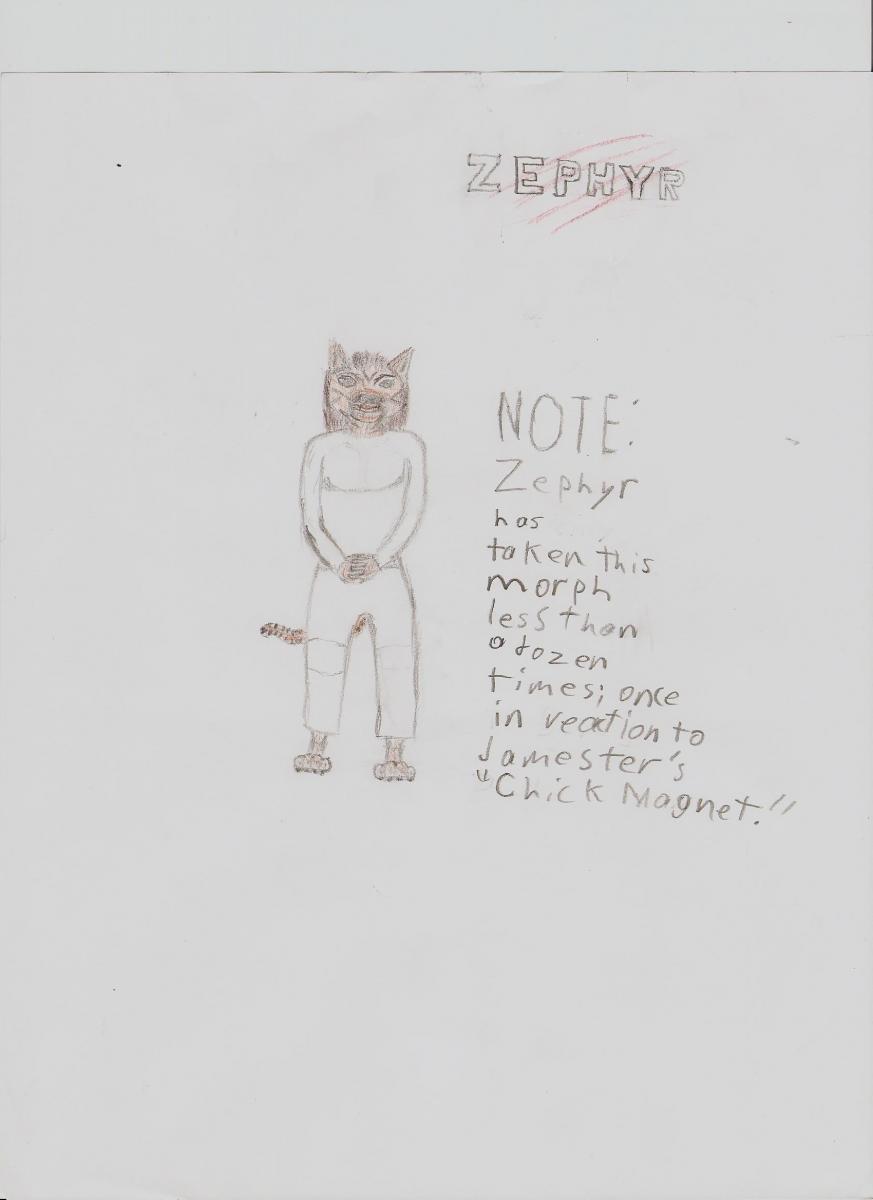 ZEPHYR
NOTE:
Zephyr
has
taken this
morph
less than
a dozen
times; once
in reaction to
Jamester's
"Chick Magnet."